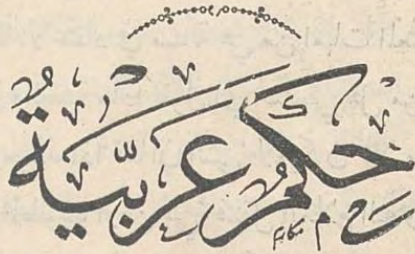 حِكَمٌ عَرَبِيَّةٌ